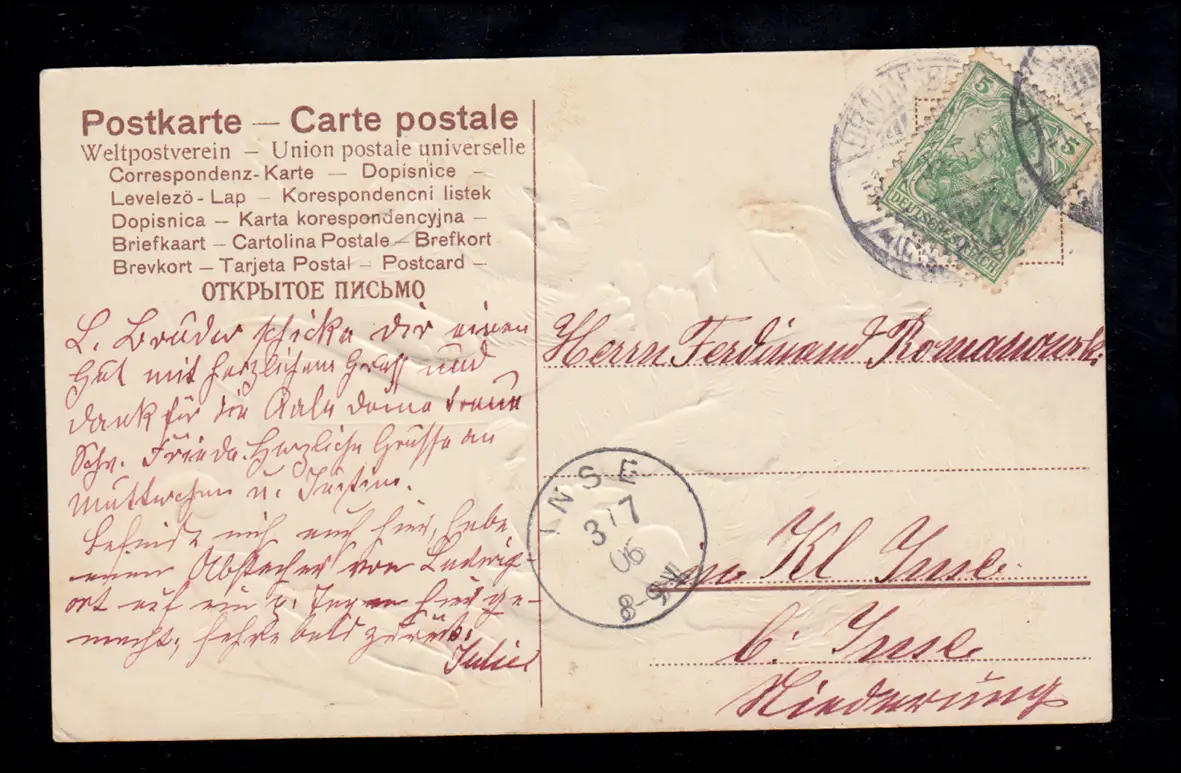 Postkarte — Carte postale
Weltpostverein — Union postale universelle
Correspondenz-Karte — Dopisnice —
Levelező-Lap — Korespondencni listek
Dopisnica — Karta korespondencyjna —
Briefkaart — Cartolina Postale — Brefkort
Brevkort — Tarjeta Postal — Postcard —
ОТКРЫТОЕ ПИСЬМО
L. Bruder schicke dir einen
Gut mit herzlichem Gruß und
dank für die Aale deine treue
Schw. Frieda. Herzliche Grüsse an
Mutterchen u.
Befinde mich auch hier, habe
einen Abstecher von Ludwigs-
ort auf ein p. Tage hier ge-
macht, kehre bald zurück.
5
5
DEUTSCHES REICH
Herrn Ferdinand Romanowski
INSE
3/7
06
8-9V.
in Kl Inse
b. Inse
Niederung